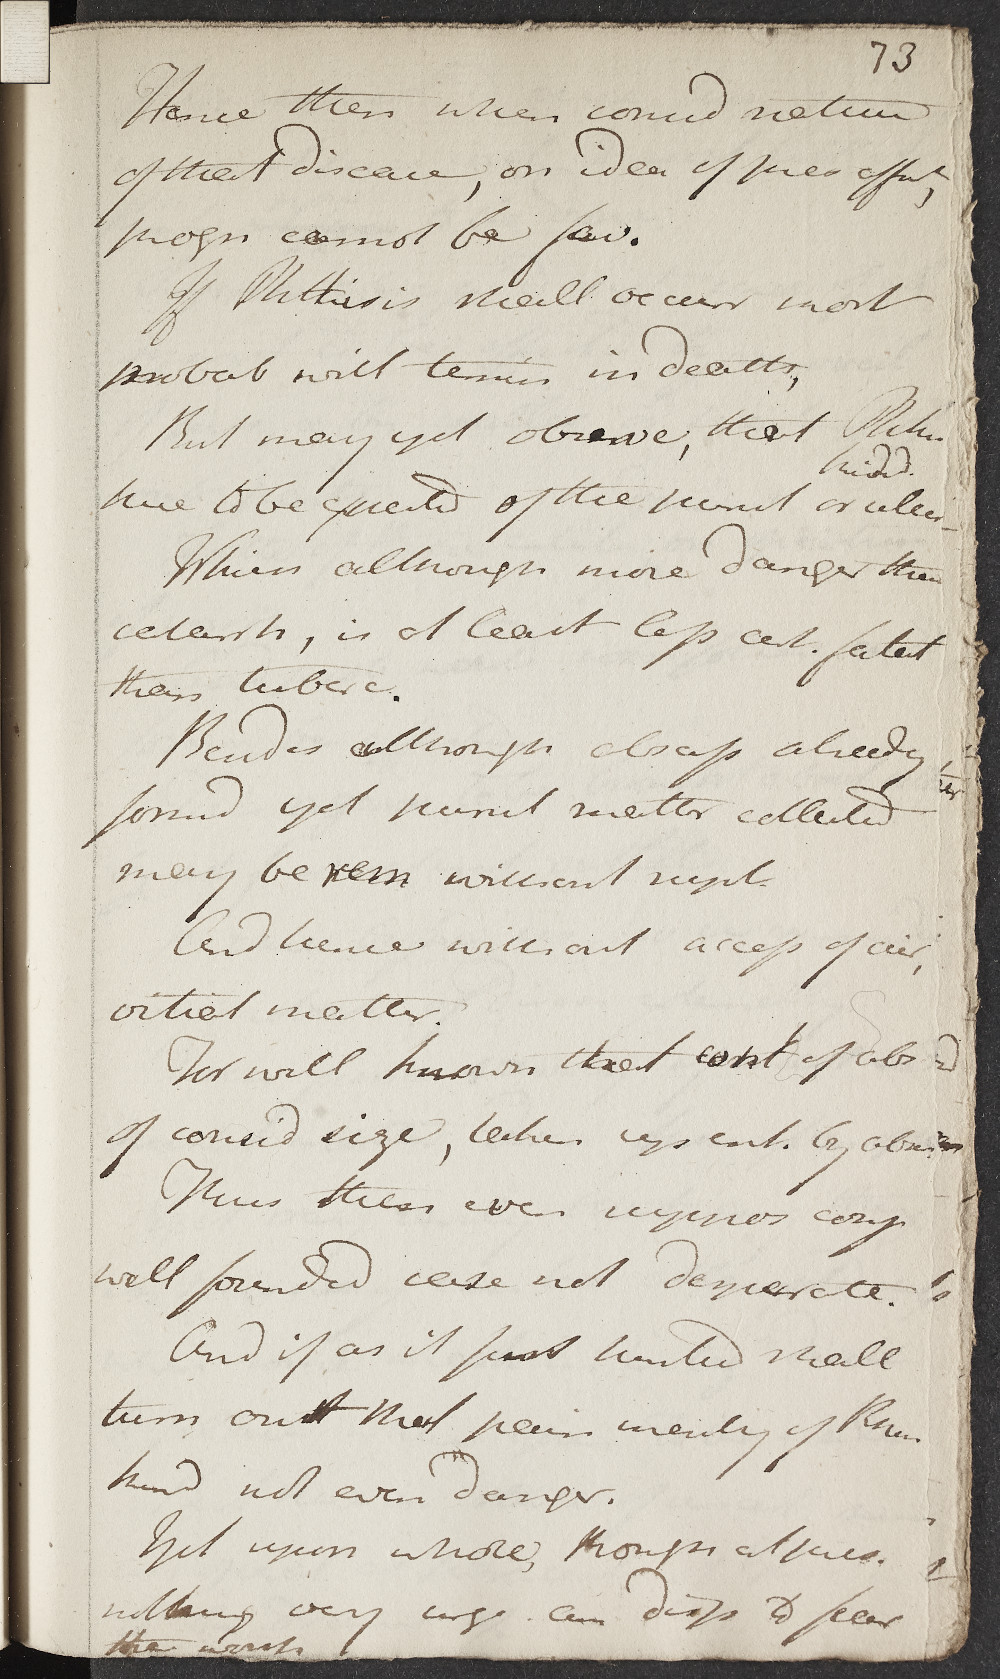 73
Hence then when consid nature
of that disease, on idea of pres affect,
progn cannot be fav.
If Phthisis shall occur most
probab will termin in death,
But may yet observe, that Phthis
kind.
here to be expected of the purul or ulcer
Which although more danger than
catarrh, is at least less cert. fatal
than tuberc.
Besides although abscess already
formd yet purul matter collected
may be rem without rupt.
And hence without access of air,
vitiat matter.
For well known that cont of abs
of consid size, taken up ent. by absor
Thus then even suppos conj
well founded case not desperate.
And if as it just hinted shall
turn out that pain merely of Rheu
kind not even danger.
Yet upon whole, though at pres.
nothing very urg. am disp to fear
the worst